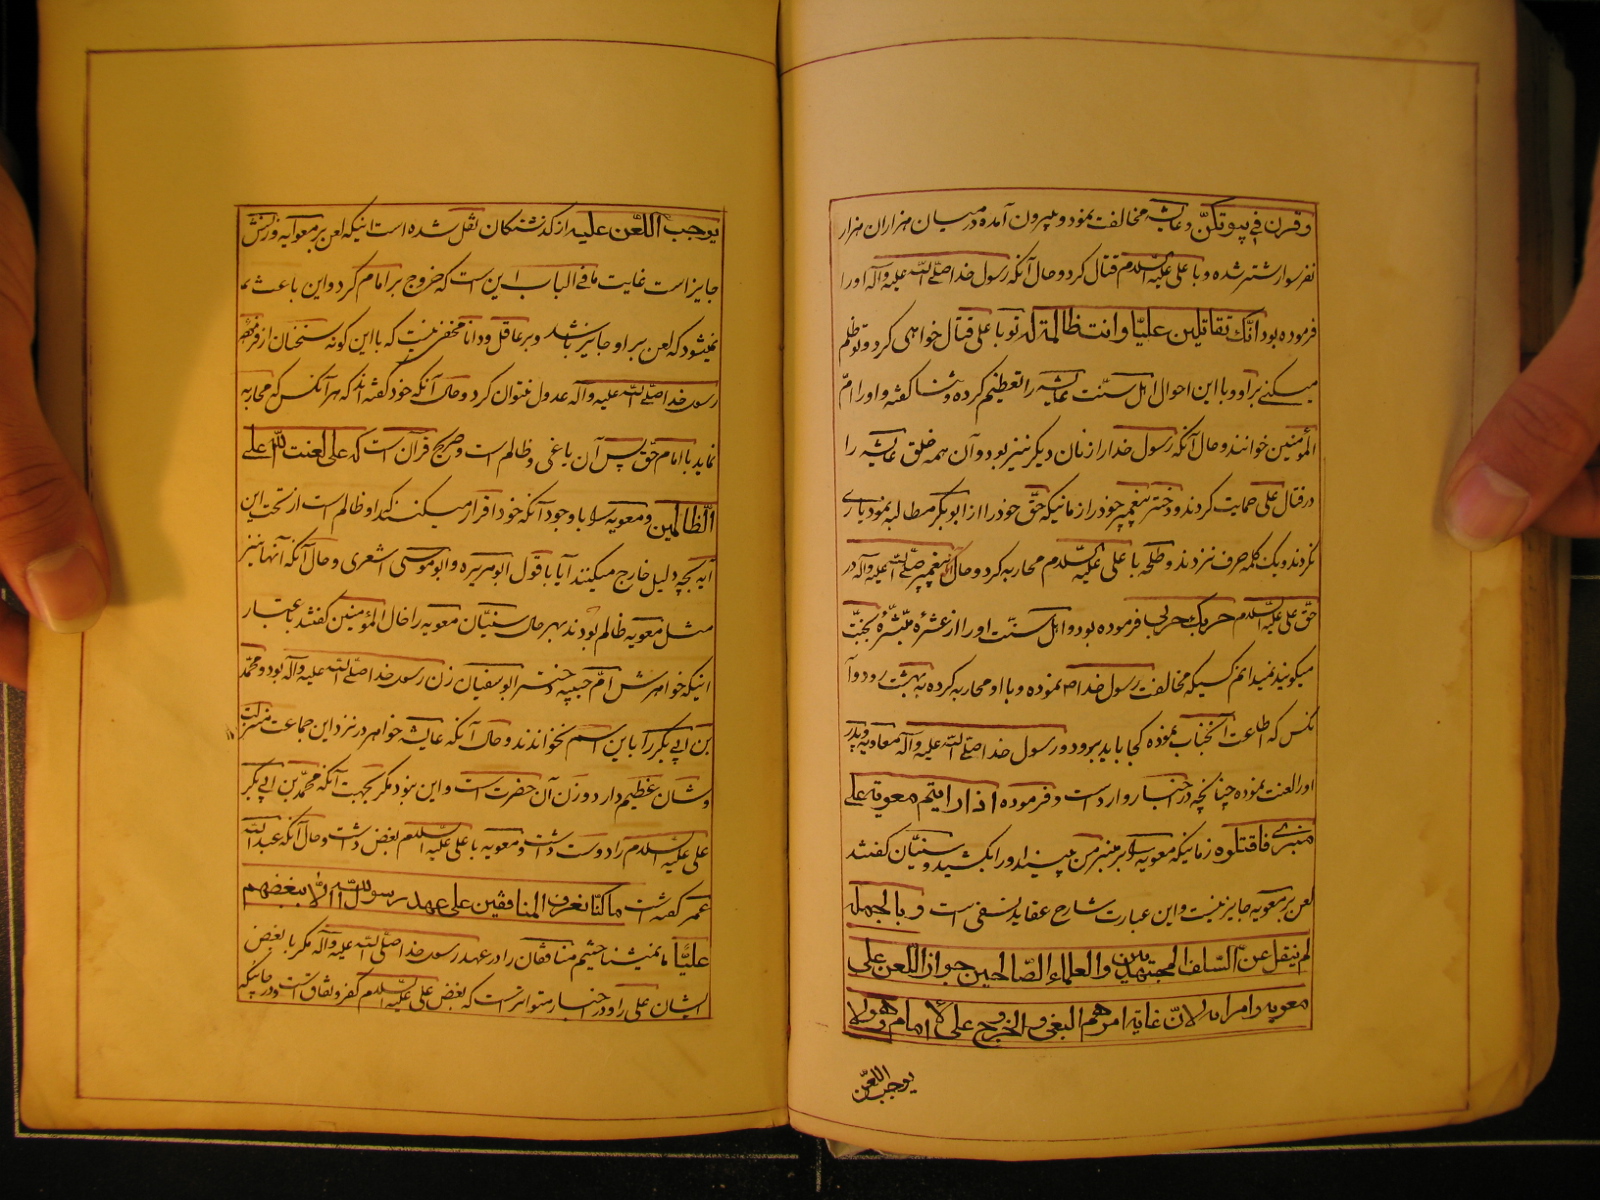 وقرن في بيوتكنّ و عایشه مخالفت نمود و بیرون آمده در میان هزاران هزار
نفر سوار شتر شده و با علی علیه السلام قتال کرد و حال آنکه رسول خدا صلی الله علیه و آله او را
فرموده بود انّك تقاتلين عليّا وانت ظالمة له تو با علی قتال خواهی کرد و تو ظلم
میکنی بر او و با این احوال اهل سنّت عایشه را تعظیم کرده و ثنا گفته و او را امّ
المؤمنین خوانند و حال آنکه رسول خدا را زنان دیگر نیز بود و آن همه خلق عایشه را
در قتال علی حمایت کردند و دختر پیغمبر خود را زمانیکه حقّ خود را از ابوبکر مطالبه نمود یاری
نکردند و یک کلمه حرف نزدند و طلحه با علی علیه السّلام محاربه کرد و حال آنکه پیغمبر صلی الله علیه و آله در
حقّ علی علیه السلام حربك حربي فرموده بود و اهل سنّت او را از عشرهٔ مبشّرهٔ بجنّت
میگویند نمیدانم کسیکه مخالفت رسول خدا ص نموده و با او محاربه کرده به بهشت رود و آ
نکس که اطاعت آنجناب نموده کجا باید برود و رسول خدا صلی الله علیه و آله معاویه و پدر
او را لعنت نموده چنانچه در اخبار وارد است و فرموده اذا رايتم معوية على
منبري فاقتلوه زمانیکه معویه را بر منبر من ببینید او را بکشید و سنیّان گفتند
لعن بر معویه جایز نیست و این عبارت شارح عقاید نسفی است و بالجمله
لم ينقل عن السّلف المجتهدين والعلماء الصّالحين جواز اللّعن على
معويه وامرائه لانّ غاية امرهم البغي والخروج على الامام وهو لا
يوجب اللّعن
يوجب اللّعن عليه از گذشتگان نقل شده است اینکه لعن بر معوایه و
جایز است غایت ما فی الباب این است که خروج بر امام کرد و این باعث
نمیشود که لعن بر او جایز باشد و بر عاقل و دانا مخفی نیست که با این گونه سخنان از
رسول خدا صلی الله علیه و آله عدول نتوان کرد و حال آنکه خود گفته اند که هر آنکس که محاربه
نماید با امام حقّ پس آن یاغی و ظالم است و صریح قرآن است که على لعنت الله على
الظّالمين و معویه را با وجود آنکه خود اقرار میکنند که او ظالم است از تحت این
آیه بچه دلیل خارج میکنند آیا با قول ابو هریره و ابو موسی اشعری و حال آنکه آنها نیز
مثل معویه ظالم بودند بهر حال سنیّان معویه را خال المؤمنین گفتند باعتبار
اینکه خواهرش امّ حبیبه دختر ابوسفیان زن رسول خدا صلی الله علیه و آله بود و محمّد
بن ابی بکر را باین اسم نخواندند و حال آنکه عایشه خواهر در نزد این جماعت منزلت
و شان عظیم دارد و زن آن حضرت است و این نبود مگر بجهت آنکه محمّد بن ابی بکر
علی علیه السلام را دوست داشت و معویه با علی علیه السلام بغض داشت و حال آنکه عبد الله
عمر گفته است ما كنّا نعرف المنافقين على عهد رسول الله الّا ببغضهم
عليّا ما نمیشناختیم منافقان را در عهد رسول خدا صلی الله علیه و آله مگر با بغض
ایشان علی را و در اخبار متواتر است که بغض علی علیه السّلام کفر و نفاق است و در جائیکه